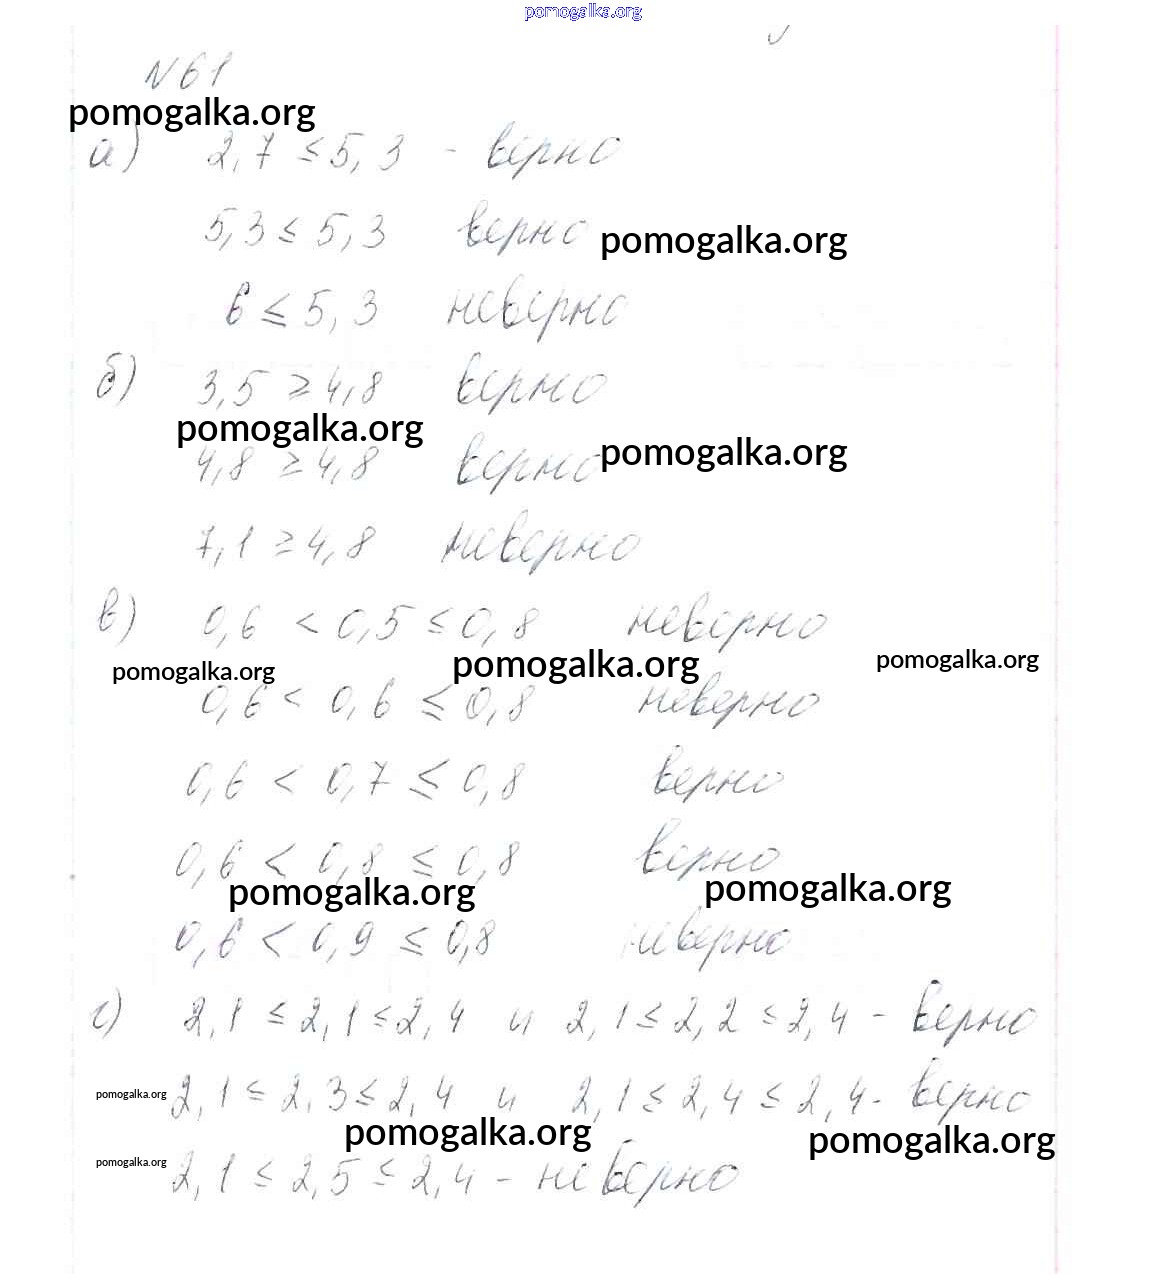 pomogalka.org
N61
pomogalka.org
а) 2,7 ≤ 5,3 - верно
5,3 ≤ 5,3 верно pomogalka.org
6 ≤ 5,3 неверно
б) 3,5 ≥ 4,8 верно
pomogalka.org
4,8 ≥ 4,8 верно pomogalka.org
7,1 ≥ 4,8 неверно
в) 0,6 < 0,5 ≤ 0,8 неверно
pomogalka.org pomogalka.org pomogalka.org
0,6 < 0,6 ≤ 0,8 неверно
0,6 < 0,7 ≤ 0,8 верно
0,6 < 0,8 ≤ 0,8 верно
pomogalka.org pomogalka.org
0,6 < 0,9 ≤ 0,8 неверно
г) 2,1 ≤ 2,1 ≤ 2,4 и 2,1 ≤ 2,2 ≤ 2,4 - верно
pomogalka.org 2,1 ≤ 2,3 ≤ 2,4 и 2,1 ≤ 2,4 ≤ 2,4 - верно
pomogalka.org pomogalka.org
pomogalka.org 2,1 ≤ 2,5 ≤ 2,4 - неверно